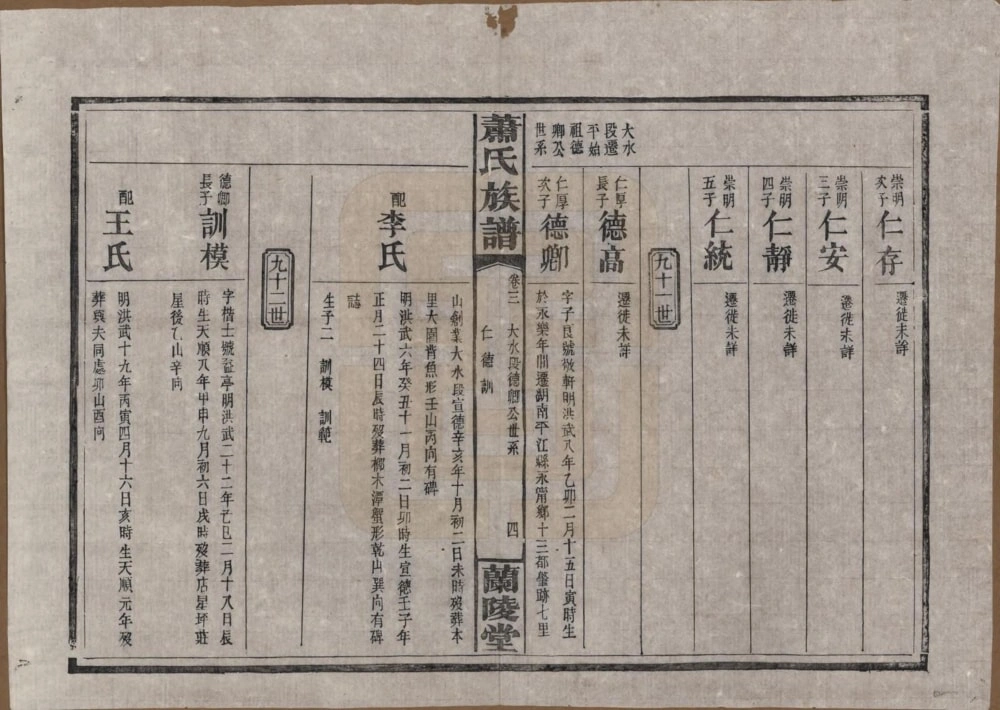 崇明次子
仁存
遷徙未詳
崇明三子
仁安
遷徙未詳
崇明四子
仁靜
遷徙未詳
崇明五子
仁統
遷徙未詳
九十一世
大水段遷平始祖德卿公世系
仁厚長子
德高
遷徙未詳
仁厚次子
德卿
字子良號敬軒明洪武八年乙卯二月十五日寅時生
於永樂年間遷湖南平江縣永甯鄉十三都肇跡七里
蕭氏族譜
卷三
大水段德卿公世系
仁德訓
四
蘭陵堂
山創業大水段宣德辛亥年十月初二日未時歿葬本
里大園背魚形壬山丙向有碑
配
李氏
明洪武六年癸丑十一月初二日卯時生宣德壬子年
正月二十四日辰時歿葬楓木潭蟹形乾山巽向有碑
誌
生子二 訓模 訓範
九十二世
德卿長子
訓模
字楷士號盜亭明洪武二十二年己巳二月十八日辰
時生天順八年甲申九月初六日戌時歿葬店星坪莊
屋後乙山辛向
配
王氏
明洪武十九年丙寅四月十六日亥時生天順元年歿
葬與夫同處卯山酉向